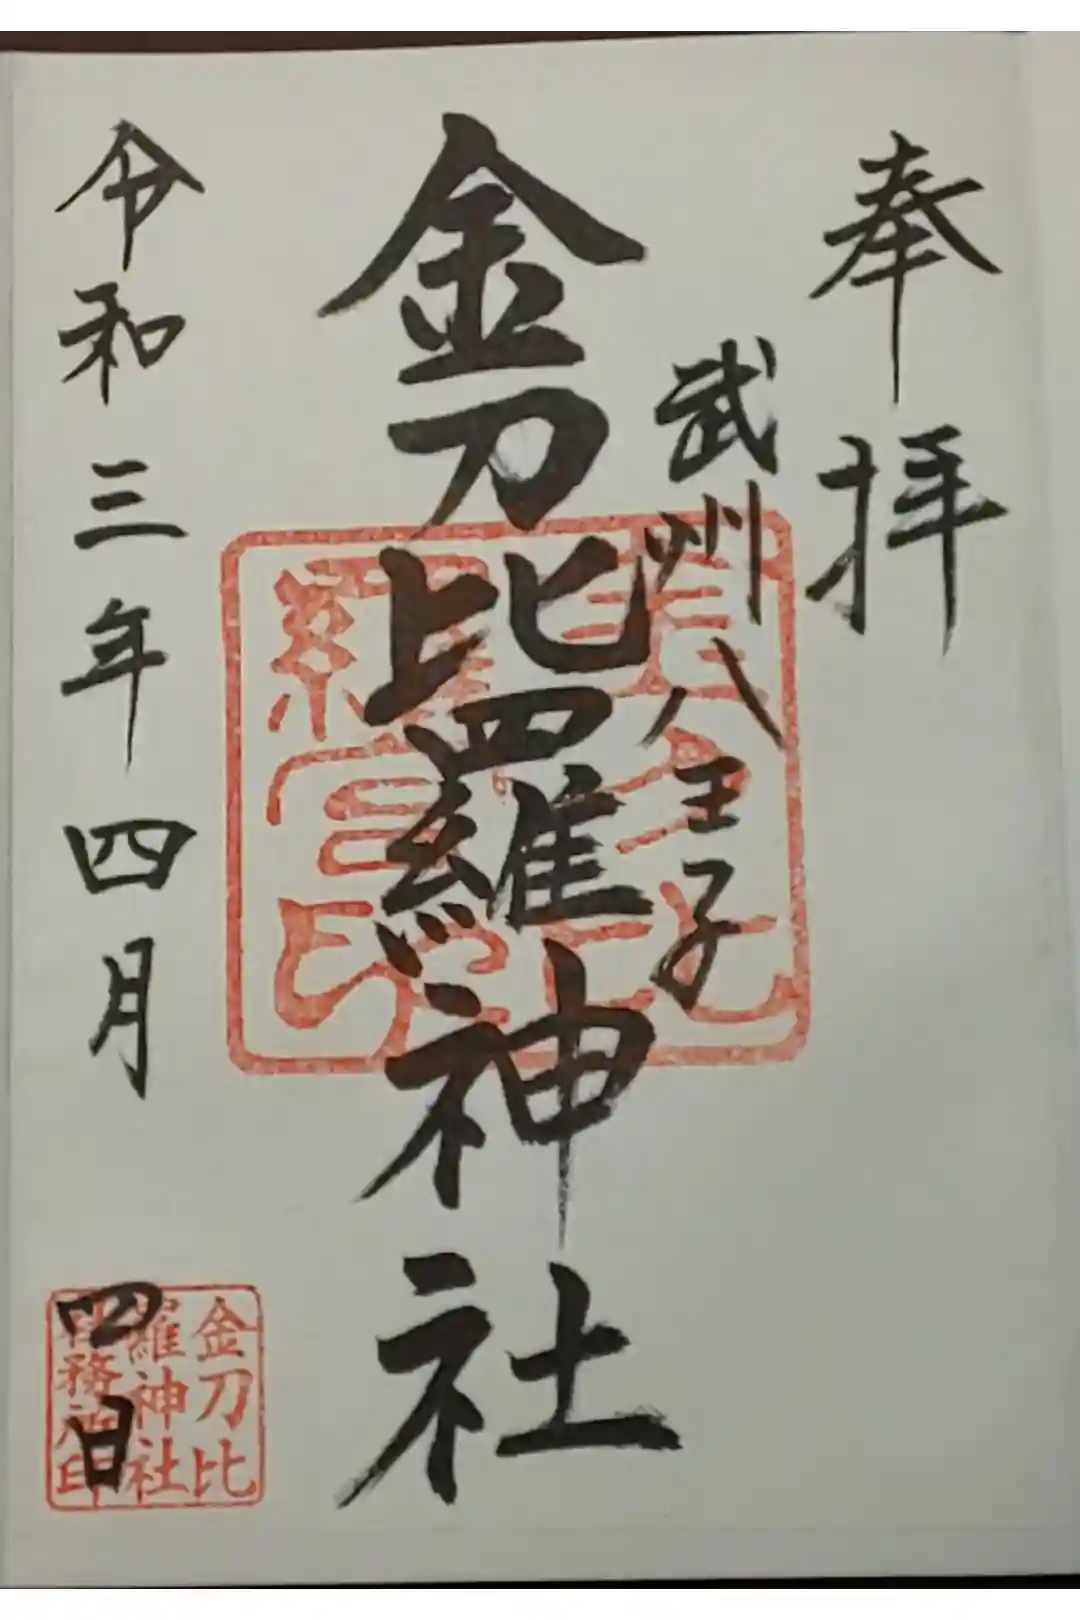 奉拝
武州八王子
金刀比羅神社
令和三年四月四日
金刀比
羅神社
社務所印